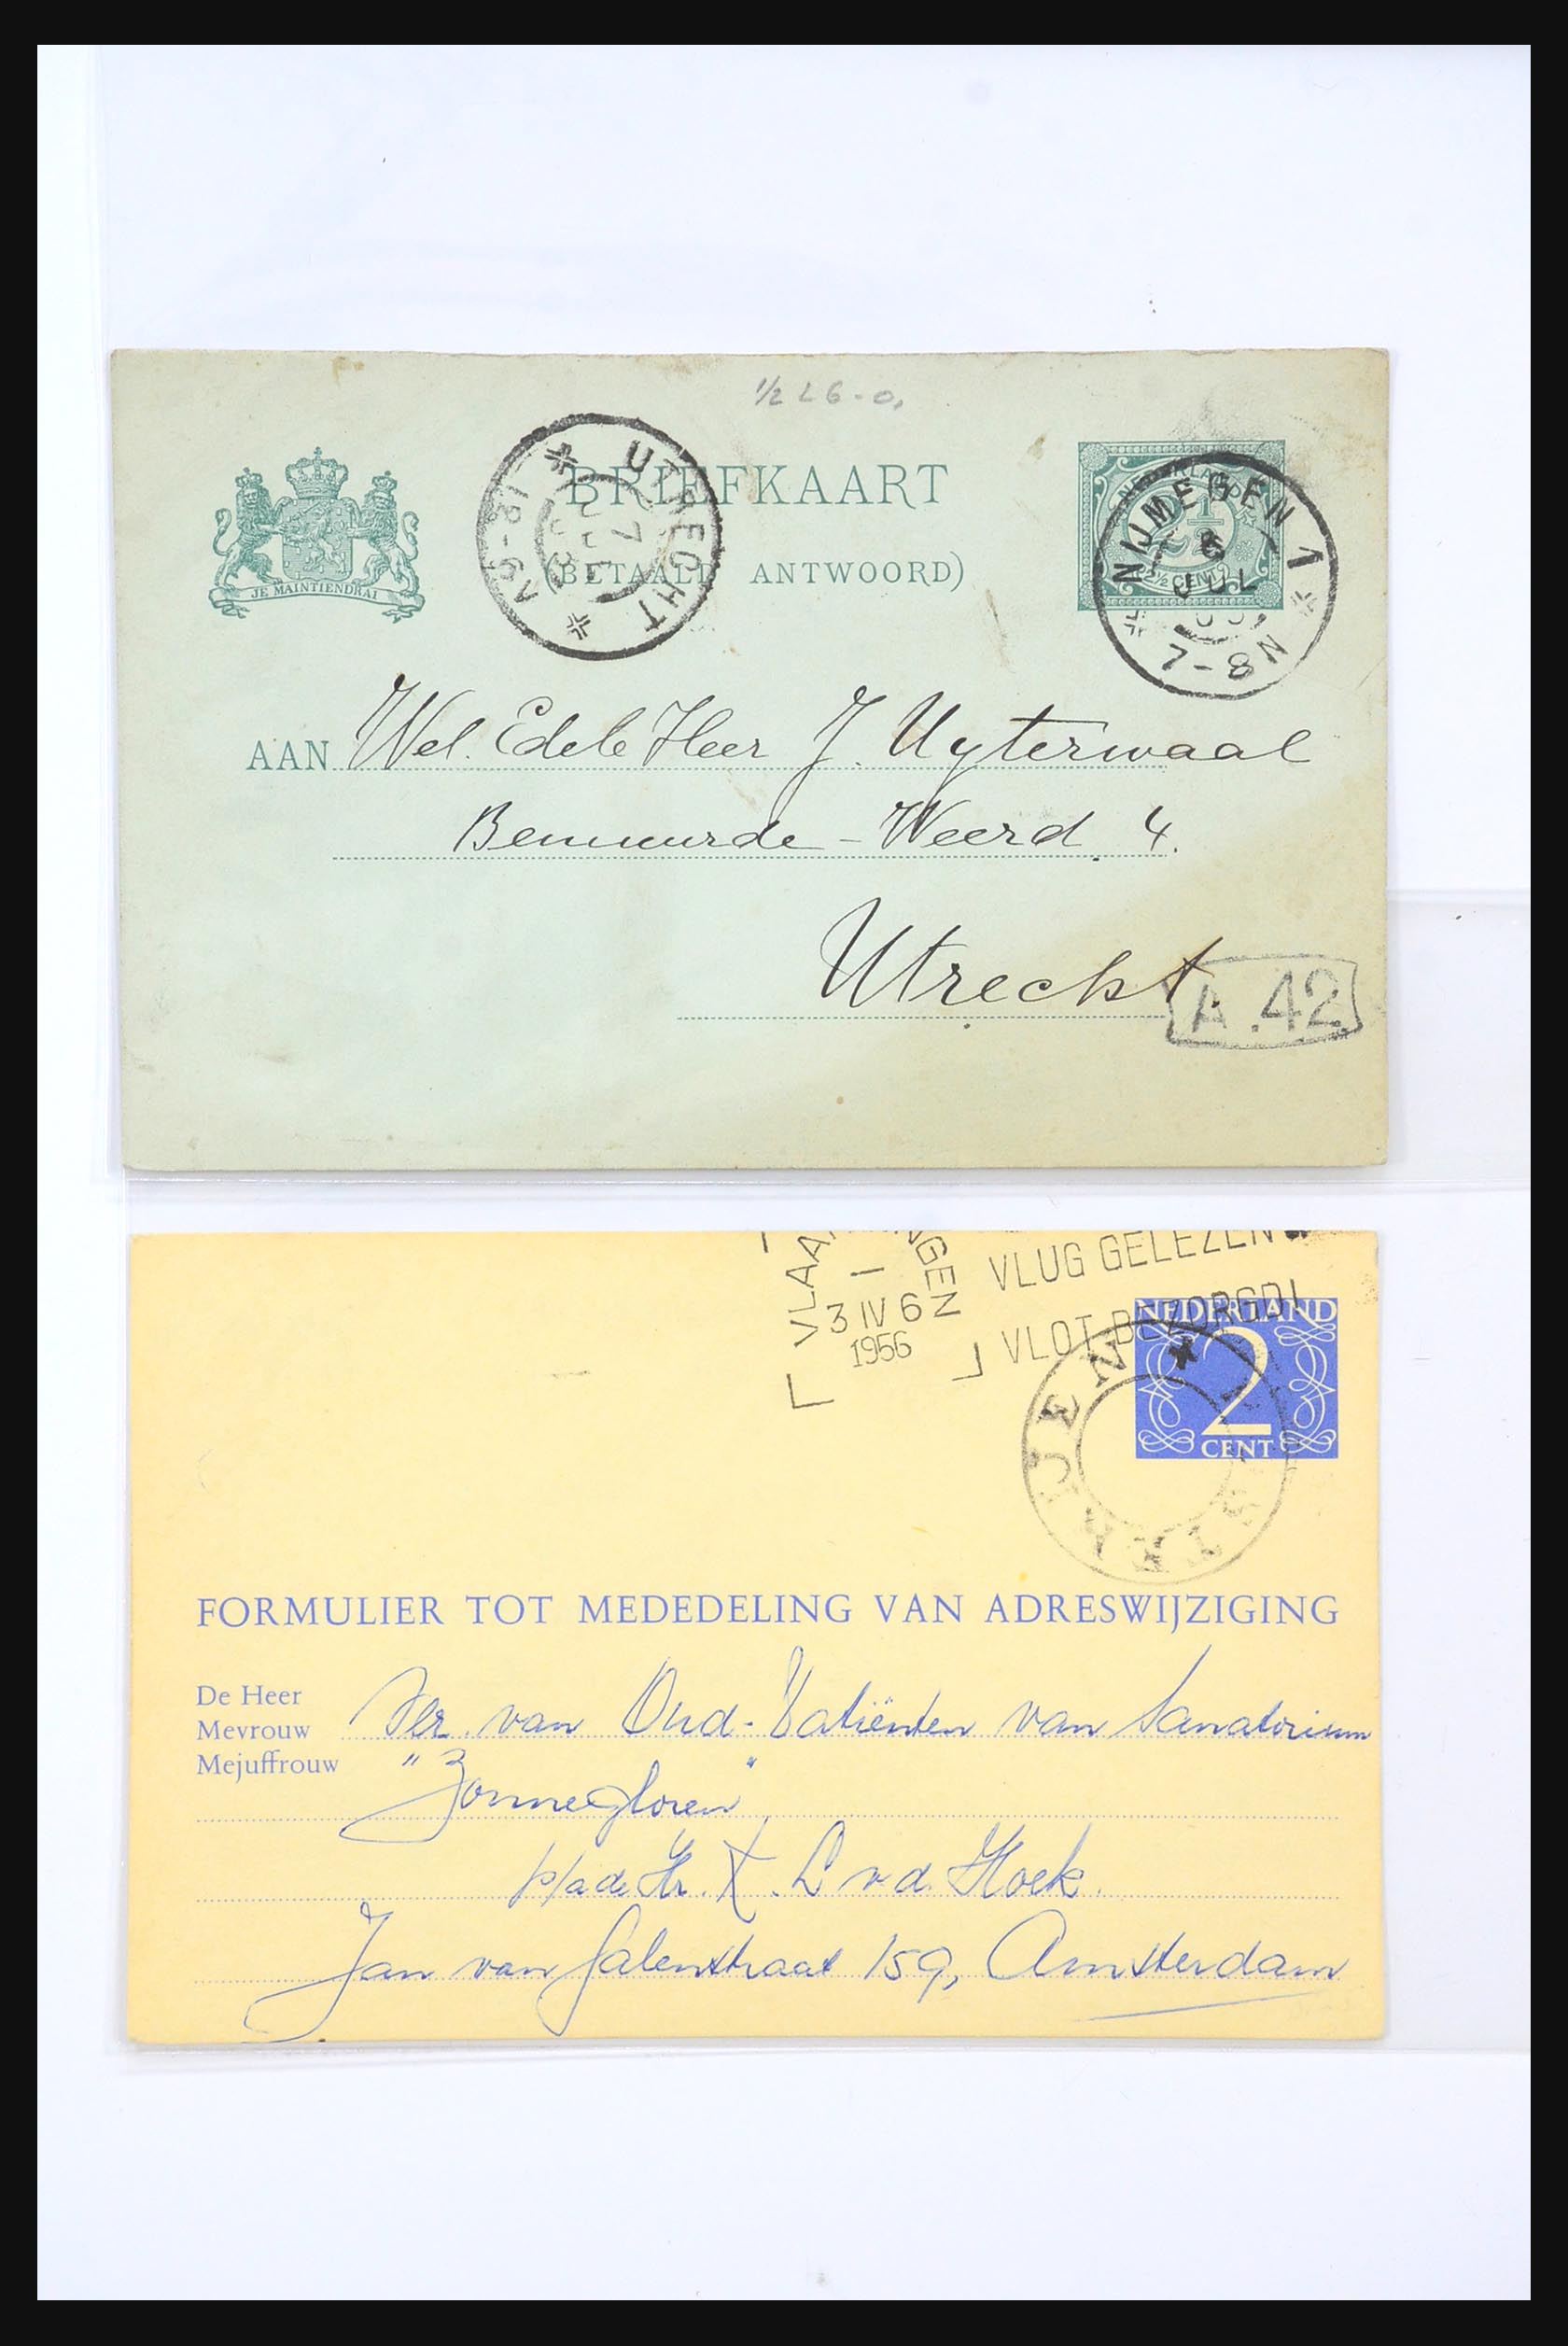 1/2 L 6-0,
BRIEFKAART
(BETAALD ANTWOORD)
JE MAINTIENDRAI
UTRECHT
7
JUL
NEDERLAND
2½ CENT
NIJMEGEN 1
6
JUL
7-8 N
AAN Wel. Edele Heer J. Uyterwaal
Bemuurde-Weerd 4.
Utrecht.
A.42
3 IV 6
1956
VLUG GELEZEN
VLOT BEZORGD!
NEDERLAND
2
CENT
FORMULIER TOT MEDEDELING VAN ADRESWIJZIGING
De Heer
Mevrouw
Mejuffrouw
Ver. van Oud-Patiënten van Sanatorium
"Zonnegloren"
p/a de Hr. X. L v.d. Hoek.
Jan van Galenstraat 159, Amsterdam